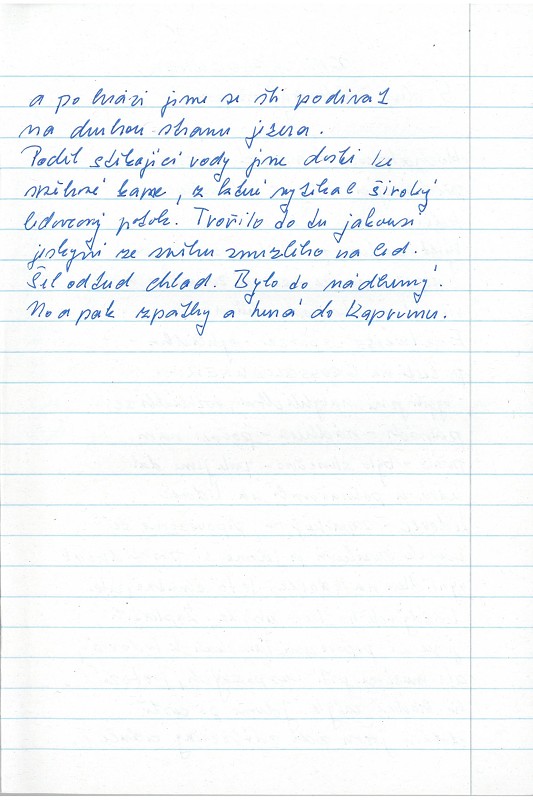 a po hrázi jsme se šli podívat
na druhou stranu jezera.
Podél stékající vody jsme došli ke
sněhové kapse, z které vytékal široký
ledovcový potok. Tvořilo to tu jakousi
jeskyni ze sněhu zmrzlého na led.
Šel odtud chlad. Bylo to nádherný.
No a pak zpátky a hurá do Kaprunu.